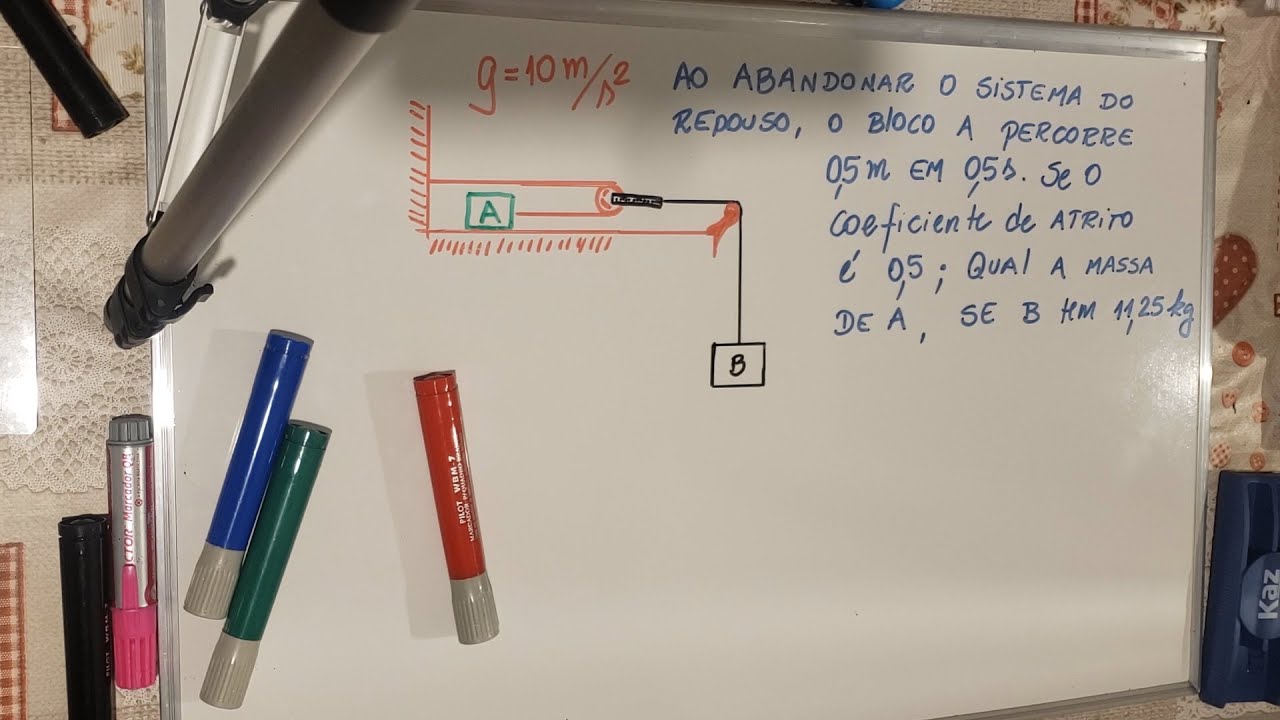 g=10m/s²
AO ABANDONAR O SISTEMA DO
REPOUSO, O BLOCO A PERCORRE
0,5m EM 0,5s. SE O
COEFICIENTE DE ATRITO
É 0,5; QUAL A MASSA
DE A, SE B TEM 11,25kg
A
B
PILOT WBM-7
CTOR Marcador
Kaz